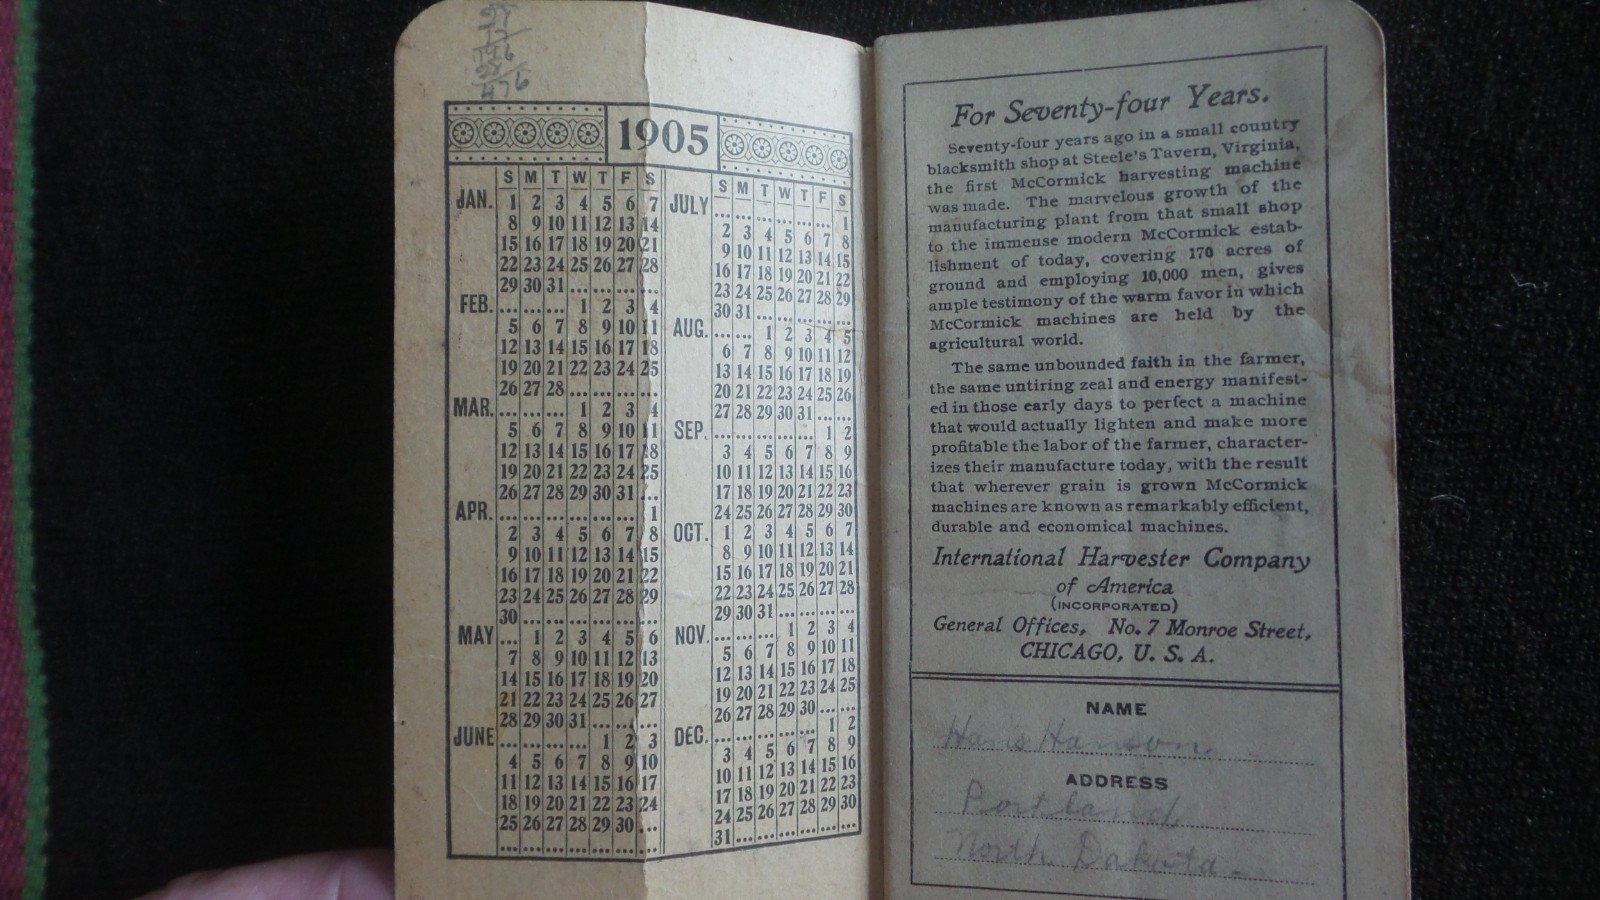 1905
S M T W T F S
JAN. 1 2 3 4 5 6 7
8 9 10 11 12 13 14
15 16 17 18 19 20 21
22 23 24 25 26 27 28
29 30 31 ... ... ... ...
FEB. ... ... ... 1 2 3 4
5 6 7 8 9 10 11
12 13 14 15 16 17 18
19 20 21 22 23 24 25
26 27 28 ... ... ... ...
MAR. ... ... ... 1 2 3 4
5 6 7 8 9 10 11
12 13 14 15 16 17 18
19 20 21 22 23 24 25
26 27 28 29 30 31 ...
APR. ... ... ... ... ... ... 1
2 3 4 5 6 7 8
9 10 11 12 13 14 15
16 17 18 19 20 21 22
23 24 25 26 27 28 29
30 ... ... ... ... ... ...
MAY ... 1 2 3 4 5 6
7 8 9 10 11 12 13
14 15 16 17 18 19 20
21 22 23 24 25 26 27
28 29 30 31 ... ... ...
JUNE ... ... ... ... 1 2 3
4 5 6 7 8 9 10
11 12 13 14 15 16 17
18 19 20 21 22 23 24
25 26 27 28 29 30 ...
... ... ... ... ... ... ...
S M T W T F S
JULY ... ... ... ... ... ... 1
2 3 4 5 6 7 8
9 10 11 12 13 14 15
16 17 18 19 20 21 22
23 24 25 26 27 28 29
30 31 ... ... ... ... ...
AUG. ... ... 1 2 3 4 5
6 7 8 9 10 11 12
13 14 15 16 17 18 19
20 21 22 23 24 25 26
27 28 29 30 31 ... ...
SEP. ... ... ... ... ... 1 2
3 4 5 6 7 8 9
10 11 12 13 14 15 16
17 18 19 20 21 22 23
24 25 26 27 28 29 30
OCT. 1 2 3 4 5 6 7
8 9 10 11 12 13 14
15 16 17 18 19 20 21
22 23 24 25 26 27 28
29 30 31 ... ... ... ...
NOV. ... ... ... 1 2 3 4
5 6 7 8 9 10 11
12 13 14 15 16 17 18
19 20 21 22 23 24 25
26 27 28 29 30 ... ...
DEC. ... ... ... ... ... 1 2
3 4 5 6 7 8 9
10 11 12 13 14 15 16
17 18 19 20 21 22 23
24 25 26 27 28 29 30
31 ... ... ... ... ... ...
For Seventy-four Years.
Seventy-four years ago in a small country
blacksmith shop at Steele's Tavern, Virginia,
the first McCormick harvesting machine
was made. The marvelous growth of the
manufacturing plant from that small shop
to the immense modern McCormick estab-
lishment of today, covering 170 acres of
ground and employing 10,000 men, gives
ample testimony of the warm favor in which
McCormick machines are held by the
agricultural world.
The same unbounded faith in the farmer,
the same untiring zeal and energy manifest-
ed in those early days to perfect a machine
that would actually lighten and make more
profitable the labor of the farmer, character-
izes their manufacture today, with the result
that wherever grain is grown McCormick
machines are known as remarkably efficient,
durable and economical machines.
International Harvester Company
of America
(INCORPORATED)
General Offices, No. 7 Monroe Street,
CHICAGO, U. S. A.
NAME
Hans Hanson.
ADDRESS
Portland
North Dakota.